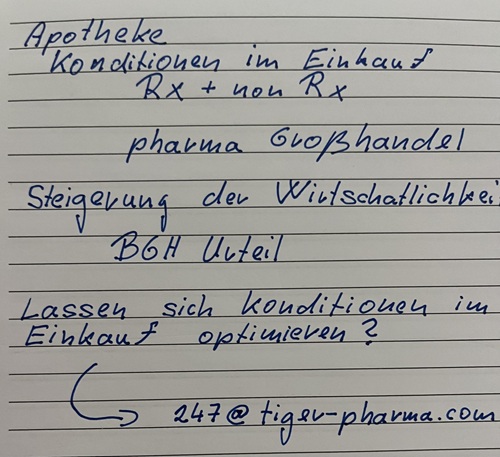 Apotheke
Konditionen im Einkauf
Rx + non Rx
pharma Großhandel
Steigerung der Wirtschatlichkei
BGH Urteil
Lassen sich Konditionen im
Einkauf optimieren?
247@tiger-pharma.com